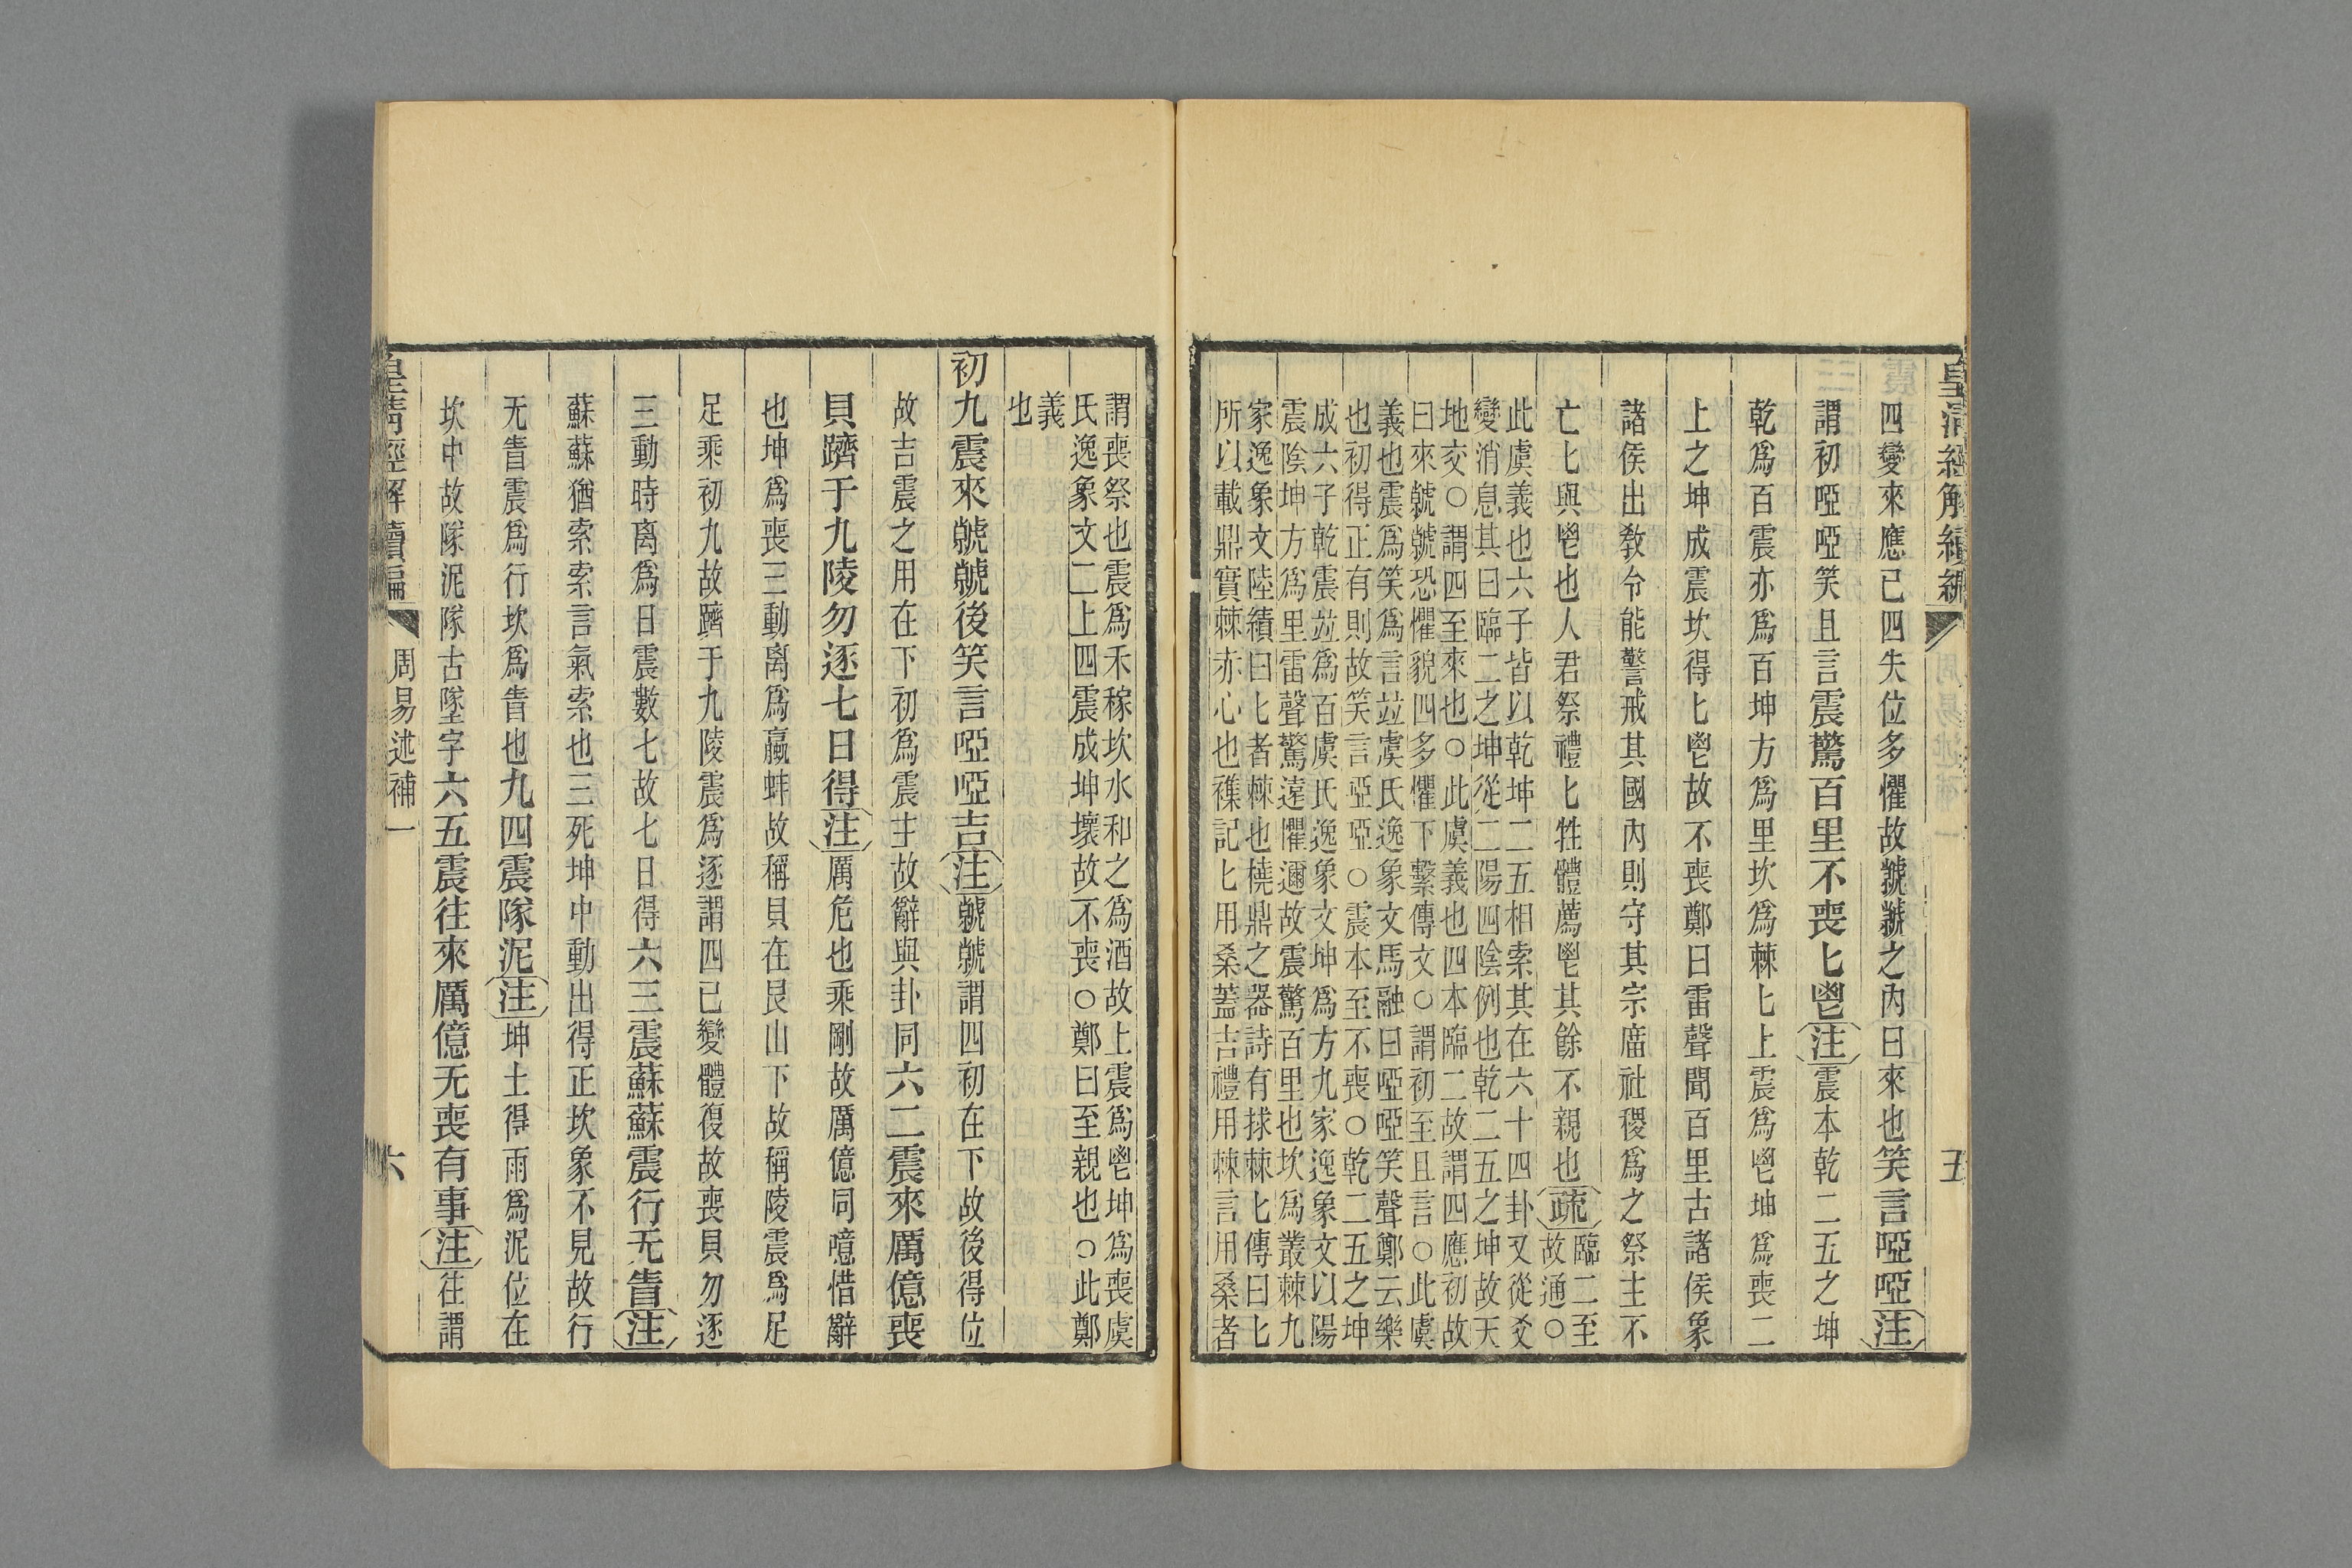 皇清經解續編
五
四變來應已四失位多懼故虩虩之內曰來也笑言啞啞注
謂初啞啞笑且言震驚百里不喪匕鬯注震本乾二五之坤
乾爲百震亦爲百坤方爲里坎爲棘匕上震爲鬯坤爲喪二
上之坤成震坎得匕鬯故不喪鄭曰雷聲聞百里古諸侯象
諸侯出敎令能警戒其國內則守其宗廟社稷爲之祭主不
亡匕與鬯也人君祭禮匕牲體薦鬯其餘不親也疏
臨二至
故通○
此虞義也六子皆以乾坤二五相索其在六十四卦又從爻
變消息其曰臨二之坤從二陽四陰例也乾二五之坤故天
地交○謂四至來也○此虞義也四本臨二故謂四應初故
曰來虩虩恐懼貌四多懼下繫傳文○謂初至且言○此虞
義也震爲笑爲言竝虞氏逸象文馬融曰啞啞笑聲鄭云樂
也初得正有則故笑言啞啞○震本至不喪○乾二五之坤
成六子乾震竝爲百虞氏逸象文坤爲方九家逸象文以陽
震陰坤方爲里雷聲驚遠懼邇故震驚百里也坎爲叢棘九
家逸象文陸績曰匕者棘也橈鼎之器詩有捄棘匕傳曰匕
所以載鼎實棘赤心也襍記匕用桑蓋吉禮用棘言用桑者
謂喪祭也震爲禾稼坎水和之爲酒故上震爲鬯坤爲喪虞
氏逸象文二上四震成坤壞故不喪○鄭曰至親也○此鄭
義
也
初九震來虩虩後笑言啞啞吉注虩虩謂四初在下故後得位
故吉震之用在下初爲震主故辭與卦同六二震來厲億喪
貝躋于九陵勿逐七日得注厲危也乘剛故厲億同噫惜辭
也坤爲喪三動离爲蠃蚌故稱貝在艮山下故稱陵震爲足
足乘初九故躋于九陵震爲逐謂四已變體復故喪貝勿逐
三動時离爲日震數七故七日得六三震蘇蘇震行无眚注
蘇蘇猶索索言氣索也三死坤中動出得正坎象不見故行
无眚震爲行坎爲眚也九四震隊泥注坤土得雨爲泥位在
坎中故隊泥隊古墜字六五震往來厲億无喪有事注往謂
皇清經解續編
周易述補一
六